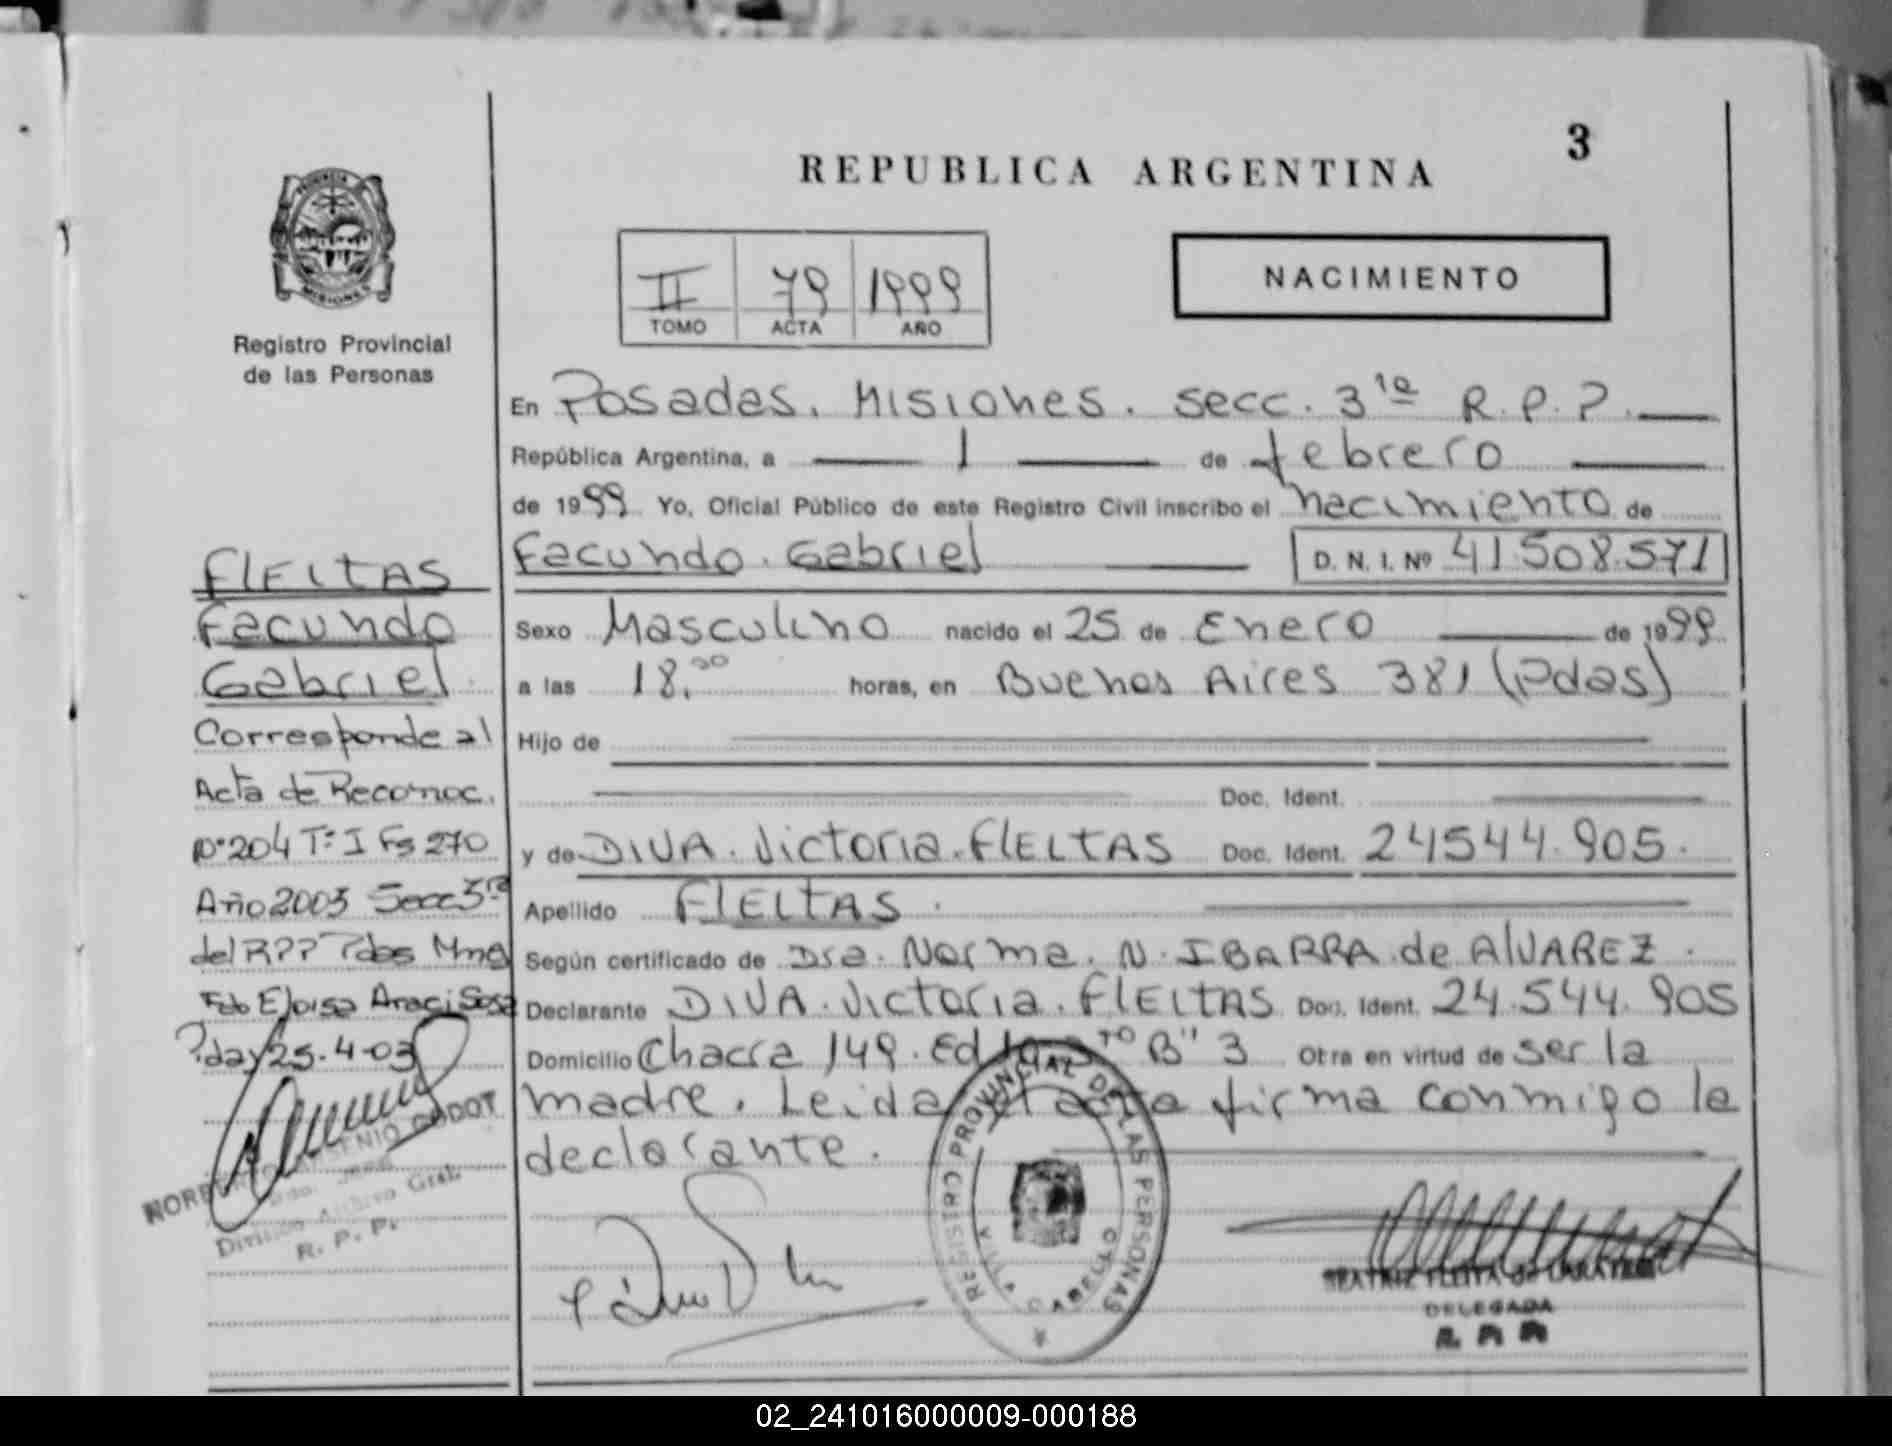 3
REPUBLICA ARGENTINA
PROVINCIA
MISIONES
Registro Provincial
de las Personas
II 79 1999
TOMO ACTA AÑO
NACIMIENTO
En Posadas. Misiones. secc. 3ra R.P.P.
República Argentina, a 1 de febrero
de 1999 Yo, Oficial Público de este Registro Civil inscribo el nacimiento de
Facundo. Gabriel D. N. I. Nº 41.508.571
Sexo Masculino nacido el 25 de Enero de 1999
a las 18,00 horas, en Buenos Aires 381 (Pdas)
Hijo de
Doc. Ident.
y de DIVA. Victoria. FLEITAS Doc. Ident. 24544.905.
Apellido FLEITAS.
Según certificado de Dra. Norma. N. IBARRA de ALVAREZ.
Declarante DIVA. Victoria. FLEITAS Doc. Ident. 24.544.905
Domicilio Chacra 149. Ed B" 3 Otra en virtud de ser la
madre. Leida el acta firma conmigo la
declarante.
FLEITAS
Facundo
Gabriel.
Corresponde al
Acta de Reconoc.
Nº 204 Tº I Fs 270
Año 2003 Secc 3ra
del RPP Pdas Mnes
Fdo Eloisa Araci Sosa
Pdas 25-4-03
NORBERTO ARSENIO GODOY
División Archivo Gral.
R. P. P.
REGISTRO PROVINCIAL DE LAS PERSONAS
VILLA CABELLO
BEATRIZ FLEITA de
DELEGADA
02_241016000009-000188